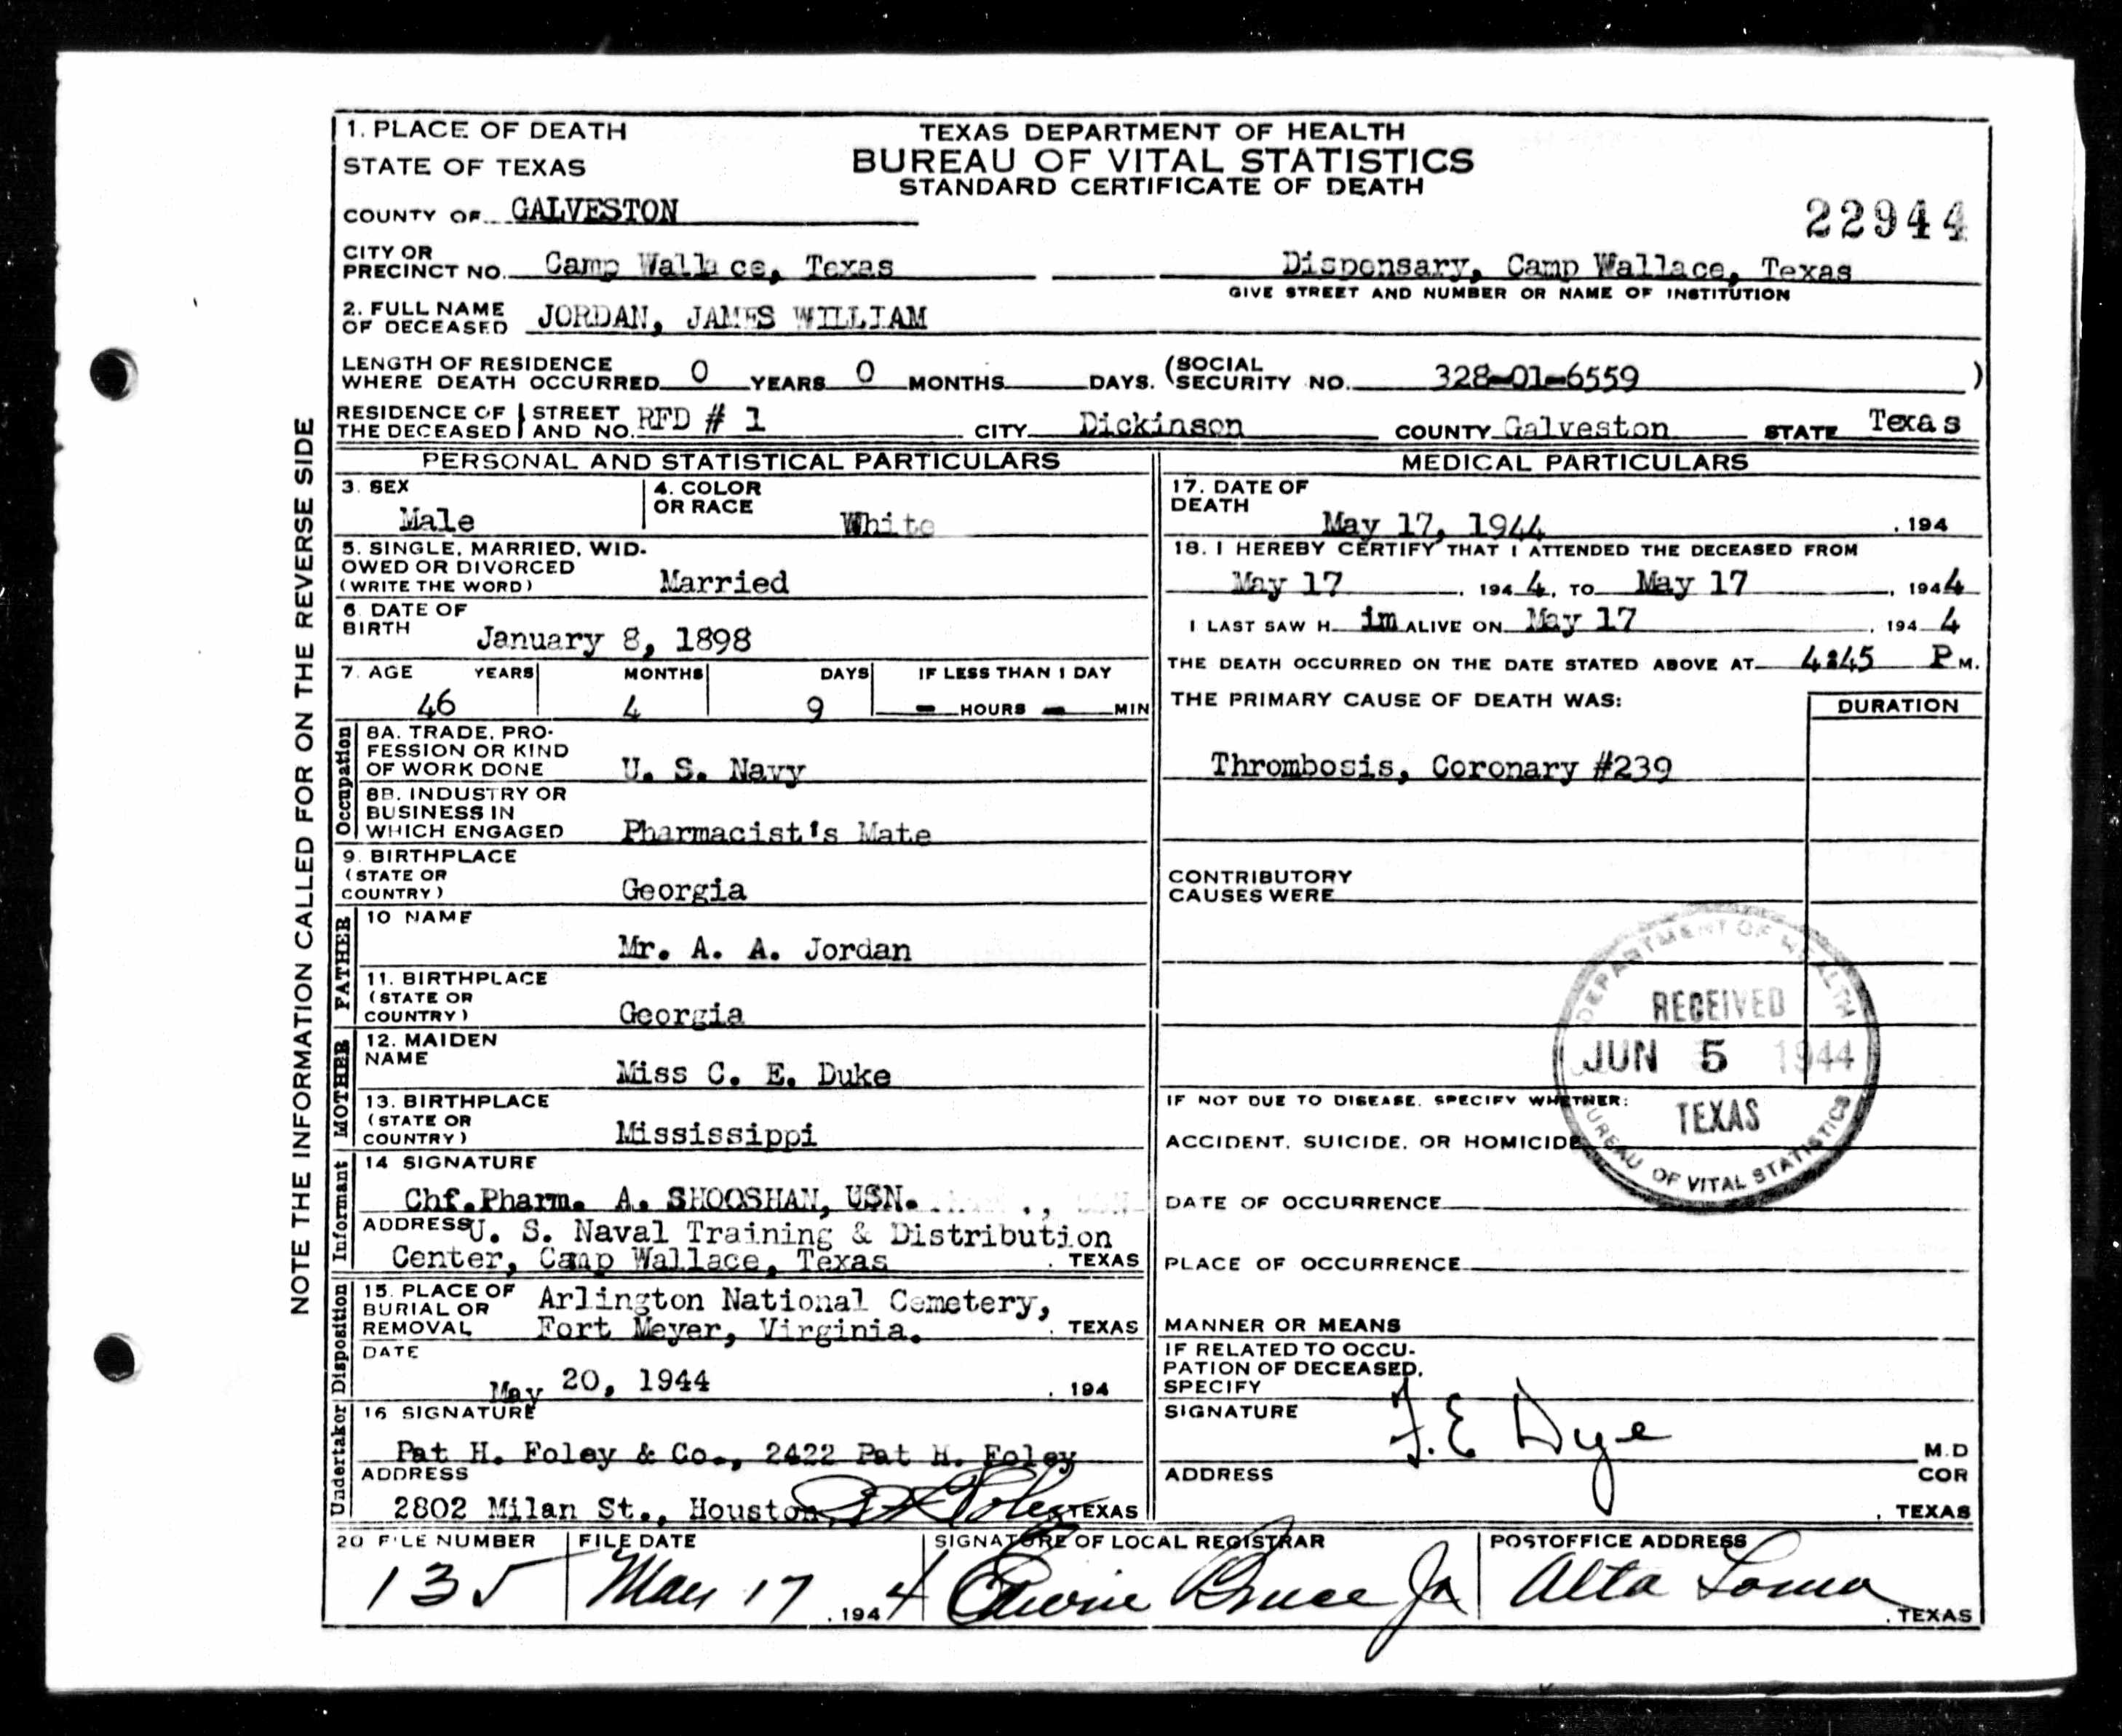 1. PLACE OF DEATH
STATE OF TEXAS
TEXAS DEPARTMENT OF HEALTH
BUREAU OF VITAL STATISTICS
STANDARD CERTIFICATE OF DEATH
COUNTY OF GALVESTON
22944
CITY OR PRECINCT NO. Camp Wallace, Texas
Dispensary, Camp Wallace, Texas
GIVE STREET AND NUMBER OR NAME OF INSTITUTION
2. FULL NAME OF DECEASED JORDAN, JAMES WILLIAM
LENGTH OF RESIDENCE WHERE DEATH OCCURRED 0 YEARS 0 MONTHS DAYS. (SOCIAL SECURITY NO. 328-01-6559 )
RESIDENCE OF THE DECEASED STREET AND NO. RFD # 1 CITY Dickinson COUNTY Galveston STATE Texas
NOTE THE INFORMATION CALLED FOR ON THE REVERSE SIDE
PERSONAL AND STATISTICAL PARTICULARS
3. SEX Male
4. COLOR OR RACE White
5. SINGLE, MARRIED, WIDOWED OR DIVORCED (WRITE THE WORD) Married
6. DATE OF BIRTH January 8, 1898
7. AGE YEARS MONTHS DAYS IF LESS THAN 1 DAY
46 4 9 - HOURS - MIN
Occupation
8A. TRADE, PROFESSION OR KIND OF WORK DONE U. S. Navy
8B. INDUSTRY OR BUSINESS IN WHICH ENGAGED Pharmacist's Mate
9. BIRTHPLACE (STATE OR COUNTRY) Georgia
FATHER
10 NAME Mr. A. A. Jordan
11. BIRTHPLACE (STATE OR COUNTRY) Georgia
MOTHER
12. MAIDEN NAME Miss C. E. Duke
13. BIRTHPLACE (STATE OR COUNTRY) Mississippi
Informant
14 SIGNATURE
Chf.Pharm. A. SHOOSHAN, USN.
ADDRESS U. S. Naval Training & Distribution
Center, Camp Wallace, Texas . TEXAS
Disposition
15. PLACE OF BURIAL OR REMOVAL Arlington National Cemetery,
Fort Meyer, Virginia. . TEXAS
DATE
May 20, 1944 . 194
Undertaker
16 SIGNATURE
Pat H. Foley & Co., 2422 Pat H. Foley
ADDRESS
2802 Milan St., Houston, TEXAS
MEDICAL PARTICULARS
17. DATE OF DEATH May 17, 1944 . 194
18. I HEREBY CERTIFY THAT I ATTENDED THE DECEASED FROM
May 17 , 194 4, TO May 17 , 1944
I LAST SAW H im ALIVE ON May 17 , 194 4
THE DEATH OCCURRED ON THE DATE STATED ABOVE AT 4:45 P M.
THE PRIMARY CAUSE OF DEATH WAS: DURATION
Thrombosis, Coronary #239
CONTRIBUTORY CAUSES WERE
DEPARTMENT OF HEALTH
RECEIVED
JUN 5 1944
TEXAS
BUREAU OF VITAL STATISTICS
IF NOT DUE TO DISEASE, SPECIFY WHETHER:
ACCIDENT, SUICIDE, OR HOMICIDE
DATE OF OCCURRENCE
PLACE OF OCCURRENCE
MANNER OR MEANS
IF RELATED TO OCCUPATION OF DECEASED, SPECIFY
SIGNATURE F. E Dye M.D
ADDRESS COR
. TEXAS
20 FILE NUMBER FILE DATE SIGNATURE OF LOCAL REGISTRAR POSTOFFICE ADDRESS
135 May 17 . 194 4 Bruce Jr Alta Loma . TEXAS